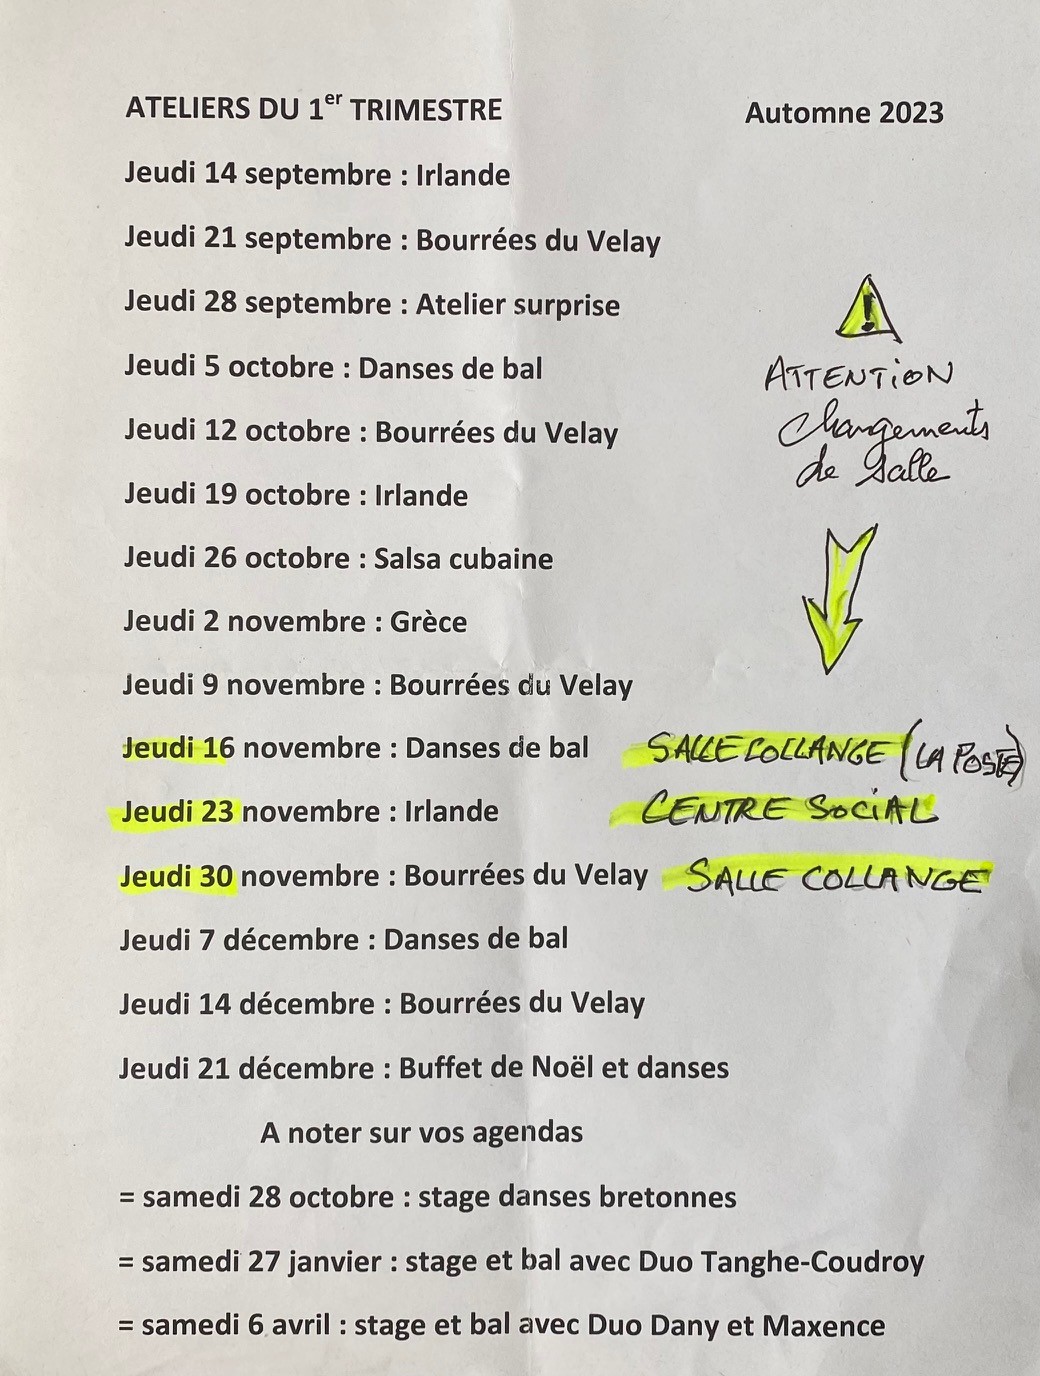 ATELIERS DU 1er TRIMESTRE Automne 2023
Jeudi 14 septembre : Irlande
Jeudi 21 septembre : Bourrées du Velay
Jeudi 28 septembre : Atelier surprise
Jeudi 5 octobre : Danses de bal
Jeudi 12 octobre : Bourrées du Velay
Jeudi 19 octobre : Irlande
Jeudi 26 octobre : Salsa cubaine
Jeudi 2 novembre : Grèce
Jeudi 9 novembre : Bourrées du Velay
!
ATTENTION
Changements
de Salle
Jeudi 16 novembre : Danses de bal SALLE COLLANGE (LA POSTE)
Jeudi 23 novembre : Irlande CENTRE SOCIAL
Jeudi 30 novembre : Bourrées du Velay SALLE COLLANGE
Jeudi 7 décembre : Danses de bal
Jeudi 14 décembre : Bourrées du Velay
Jeudi 21 décembre : Buffet de Noël et danses
A noter sur vos agendas
= samedi 28 octobre : stage danses bretonnes
= samedi 27 janvier : stage et bal avec Duo Tanghe-Coudroy
= samedi 6 avril : stage et bal avec Duo Dany et Maxence